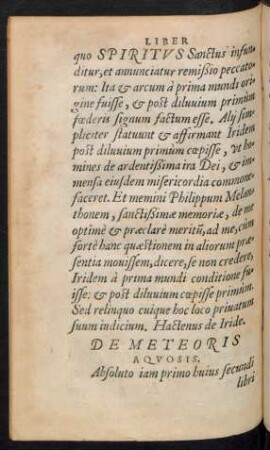 LIBER
quo SPIRITVS Sanctus infun-
ditur, et annunciatur remißio peccato-
rum: Ita & arcum à prima mundi ori-
gine fuisse, & post diluuium primùm
fœderis signum factum esse. Alij sim-
pliciter statuunt & affirmant Iridem
post diluuium primùm cœpisse, vt ho-
mines de ardentißima ira Dei, & im-
mensa eiusdem misericordia commone-
faceret. Et memini Philippum Melan-
thonem, sanctißimæ memoriæ, de me
optimè & præclarè meritũ, ad me, cùm
fortè hanc quæstionem in aliorum præ-
sentia mouissem, dicere, se non credere,
Iridem à prima mundi conditione fu-
isse: & post diluuium cœpisse primùm.
Sed relinquo cuique hoc loco priuatum
suum iudicium. Hactenus de Iride.
DE METEORIS
AQVOSIS.
Absoluto iam primo huius secundi
libri